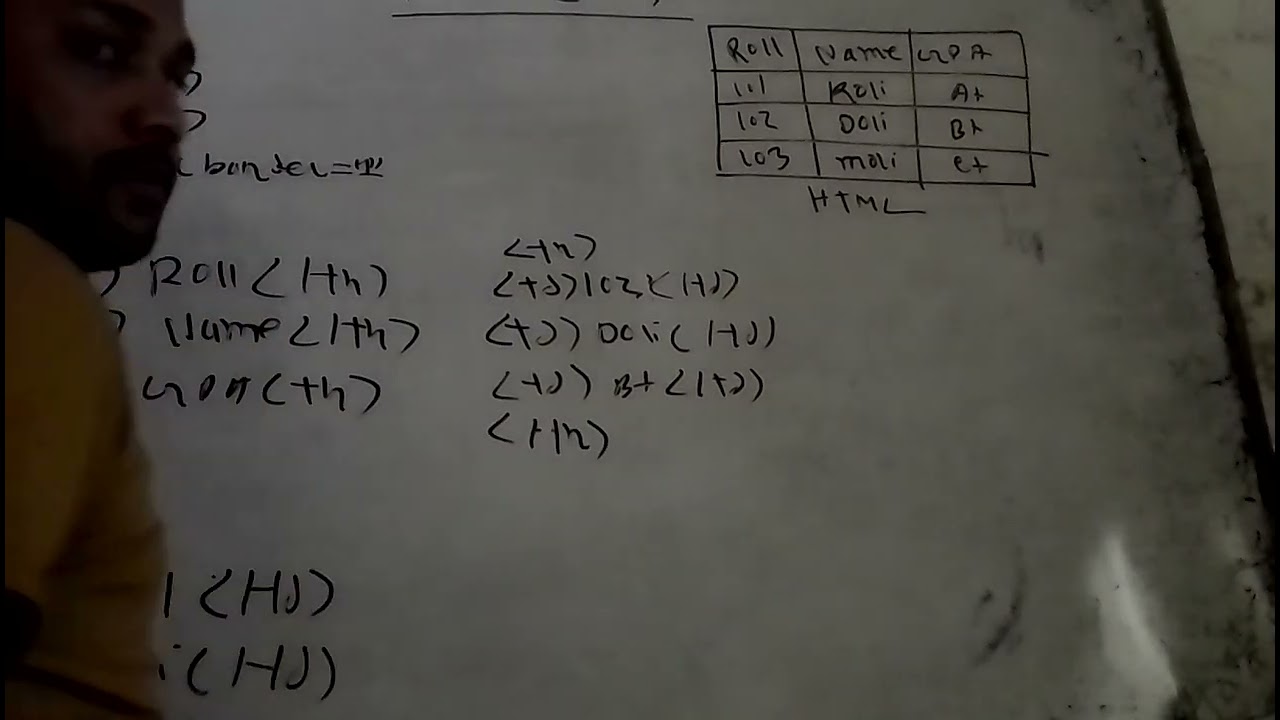 Roll Name GPA
101 Roli A+
102 Doli B+
103 moli C+
HTML
border="1"
Roll</th>
Name</th>
GPA<th>
<tr>
<td>102</td>
<td>Doli</td>
<td>B+</td>
</tr>
1</td>
i</td>